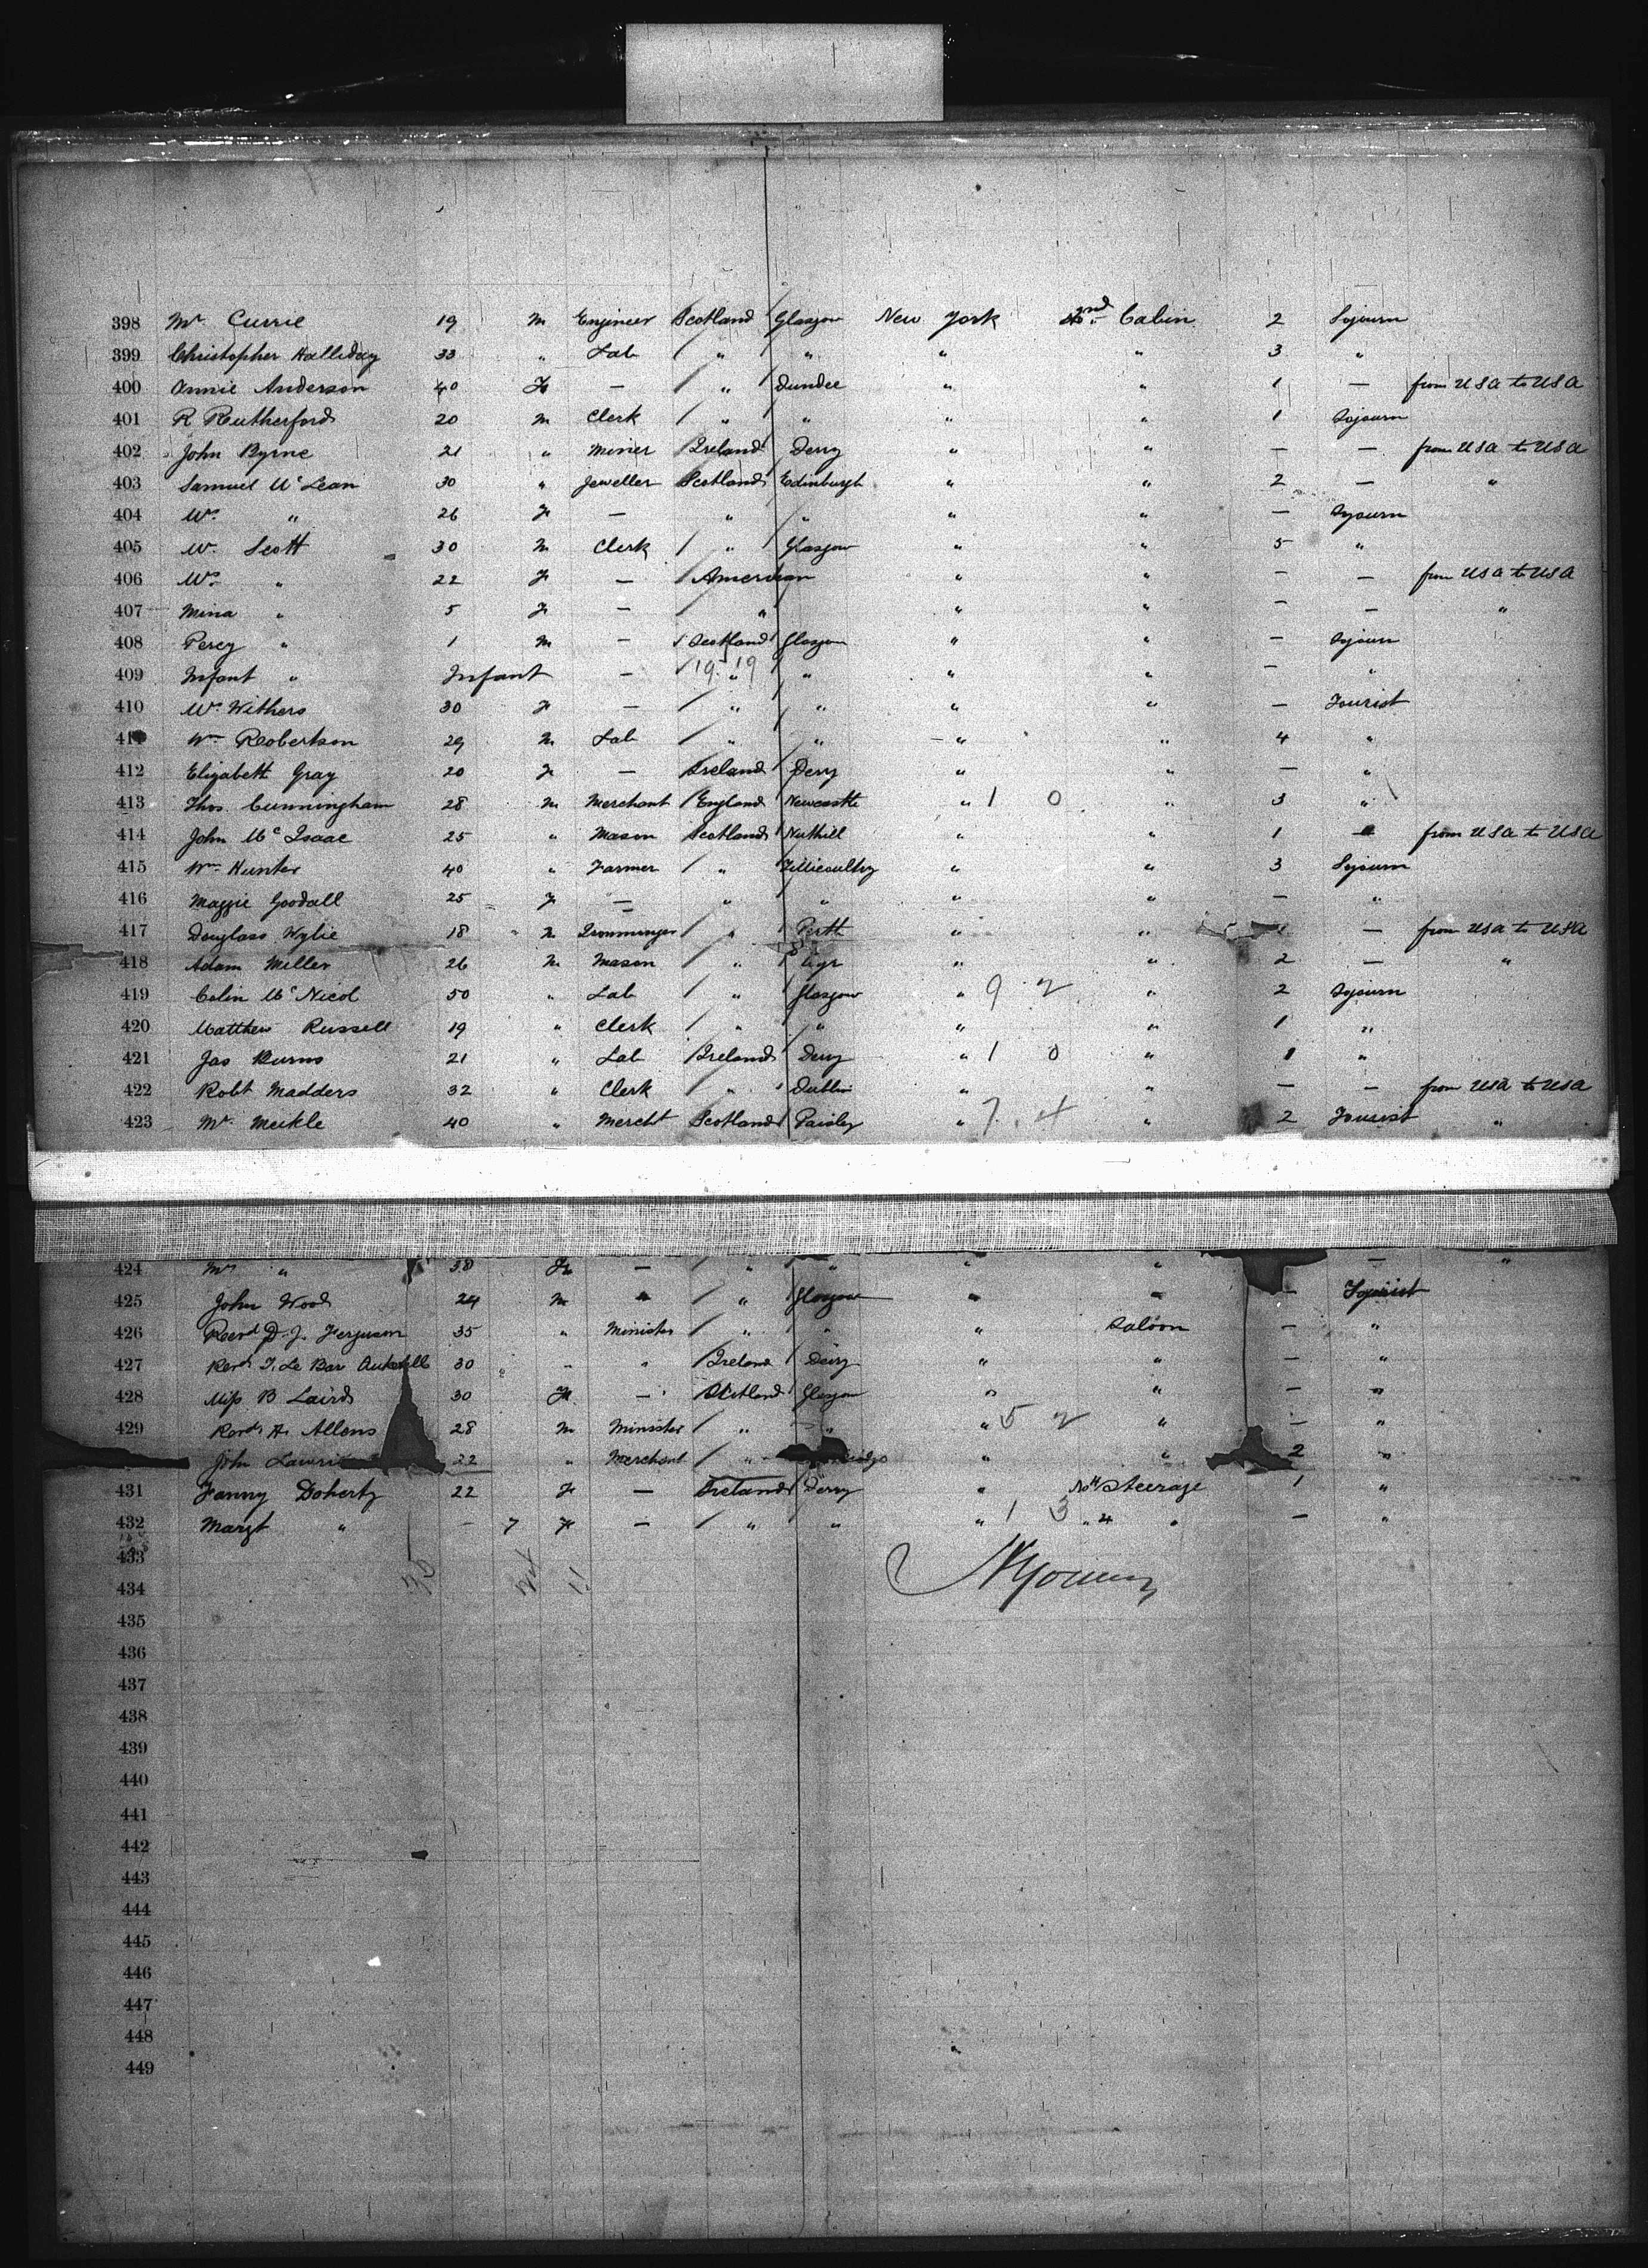 398 Mr Currie 19 M Engineer Scotland Glasgow New York 2nd Cabin 2 Sojourn
399 Christopher Halliday 33 " Lab " " " " 3 "
400 Annie Anderson 40 F — " Dundee " " 1 — from USA to USA
401 R Rutherford 20 M Clerk " " " " 1 Sojourn
402 John Byrne 21 " Miner Ireland Derry " " — — from USA to USA
403 Samuel McLean 30 " Jeweller Scotland Edinburgh " " 2 — "
404 Mrs " 26 F — " " " " — Sojourn
405 Mr Scott 30 M Clerk " Glasgow " " 5 "
406 Mrs " 22 F — American " " — — from USA to USA
407 Mina " 5 F — " " " — — "
408 Percy " 1 M — Scotland Glasgow " " — Sojourn
409 Infant " Infant — 19 19 " " " " — "
410 Mrs Withers 30 F — " " " " — Tourist
411 Wm Robertson 29 M Lab " " " " 4 "
412 Elizabeth Gray 20 F — Ireland Derry " " — "
413 Thos. Cunningham 28 M Merchant England Newcastle " 1 0 " 3 "
414 John McIsaac 25 " Mason Scotland " " 1 — from USA to USA
415 Wm Hunter 40 " Farmer " Tillicoultry " " 3 Sojourn
416 Maggie Goodall 25 F — " " " " — "
417 Douglass Wylie 18 M Ironmonger " Perth " " — from USA to USA
418 Adam Miller 26 M Mason " Ayr " " 2 — "
419 Colin McNicol 50 " Lab " Glasgow " 9 2 " 2 Sojourn
420 Matthew Russell 19 " Clerk " " " " 1 "
421 Jas Burns 21 " Lab Ireland Derry " 1 0 " 1 "
422 Robt Madders 32 " Clerk " Dublin " " — — from USA to USA
423 Mr Meikle 40 " Mercht Scotland Paisley " 7.4 " 2 Tourist "
424 Mrs " 38 F — " " " " — "
425 John Wood 24 M " " Glasgow " " — Tourist
426 Revd D. J. Ferguson 35 " Minister " " " Saloon — "
427 Revd T. Le Bar 30 " " Ireland Derry " " — "
428 Miss B Laird 30 F — Scotland Glasgow " " — "
429 Revd A. Allens 28 M Minister " " " 5 2 " — "
John 22 " Merchant " " " 2 "
431 Fanny Doherty 22 F — Ireland Derry " Steerage 1 "
432 Margt " — 7 F — " " " 1 3 " " — "
433
434
435
436
437
438
439
440
441
442
443
444
445
446
447
448
449